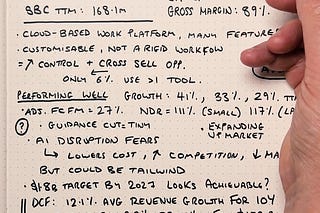 SBC TTM: 168.1m
GROSS MARGIN: 89%
• CLOUD-BASED WORK PLATFORM, MANY FEATURE
• CUSTOMISABLE, NOT A RIGID WORKFLOW
= ↑ CONTROL + CROSS SELL OPP.
ONLY 6% USE >1 TOOL.
PERFORMING WELL GROWTH: 41%, 33%, 29% TT
• ADJ. FCFM = 27% • NDR = 111% (SMALL) 117% (LA
? • GUIDANCE CUT = TINY • EXPANDING
UP MARKET
• AI DISRUPTION FEARS
↳ LOWERS COST, ↑ COMPETITION, ↓ MA
BUT COULD BE TAILWIND
TARGET BY 2027 LOOKS ACHIEVABLE?
DCF: 12.1% AVG REVENUE GROWTH FOR 10Y